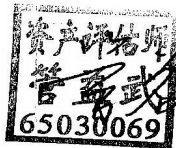 资产评估师
管武
65030069